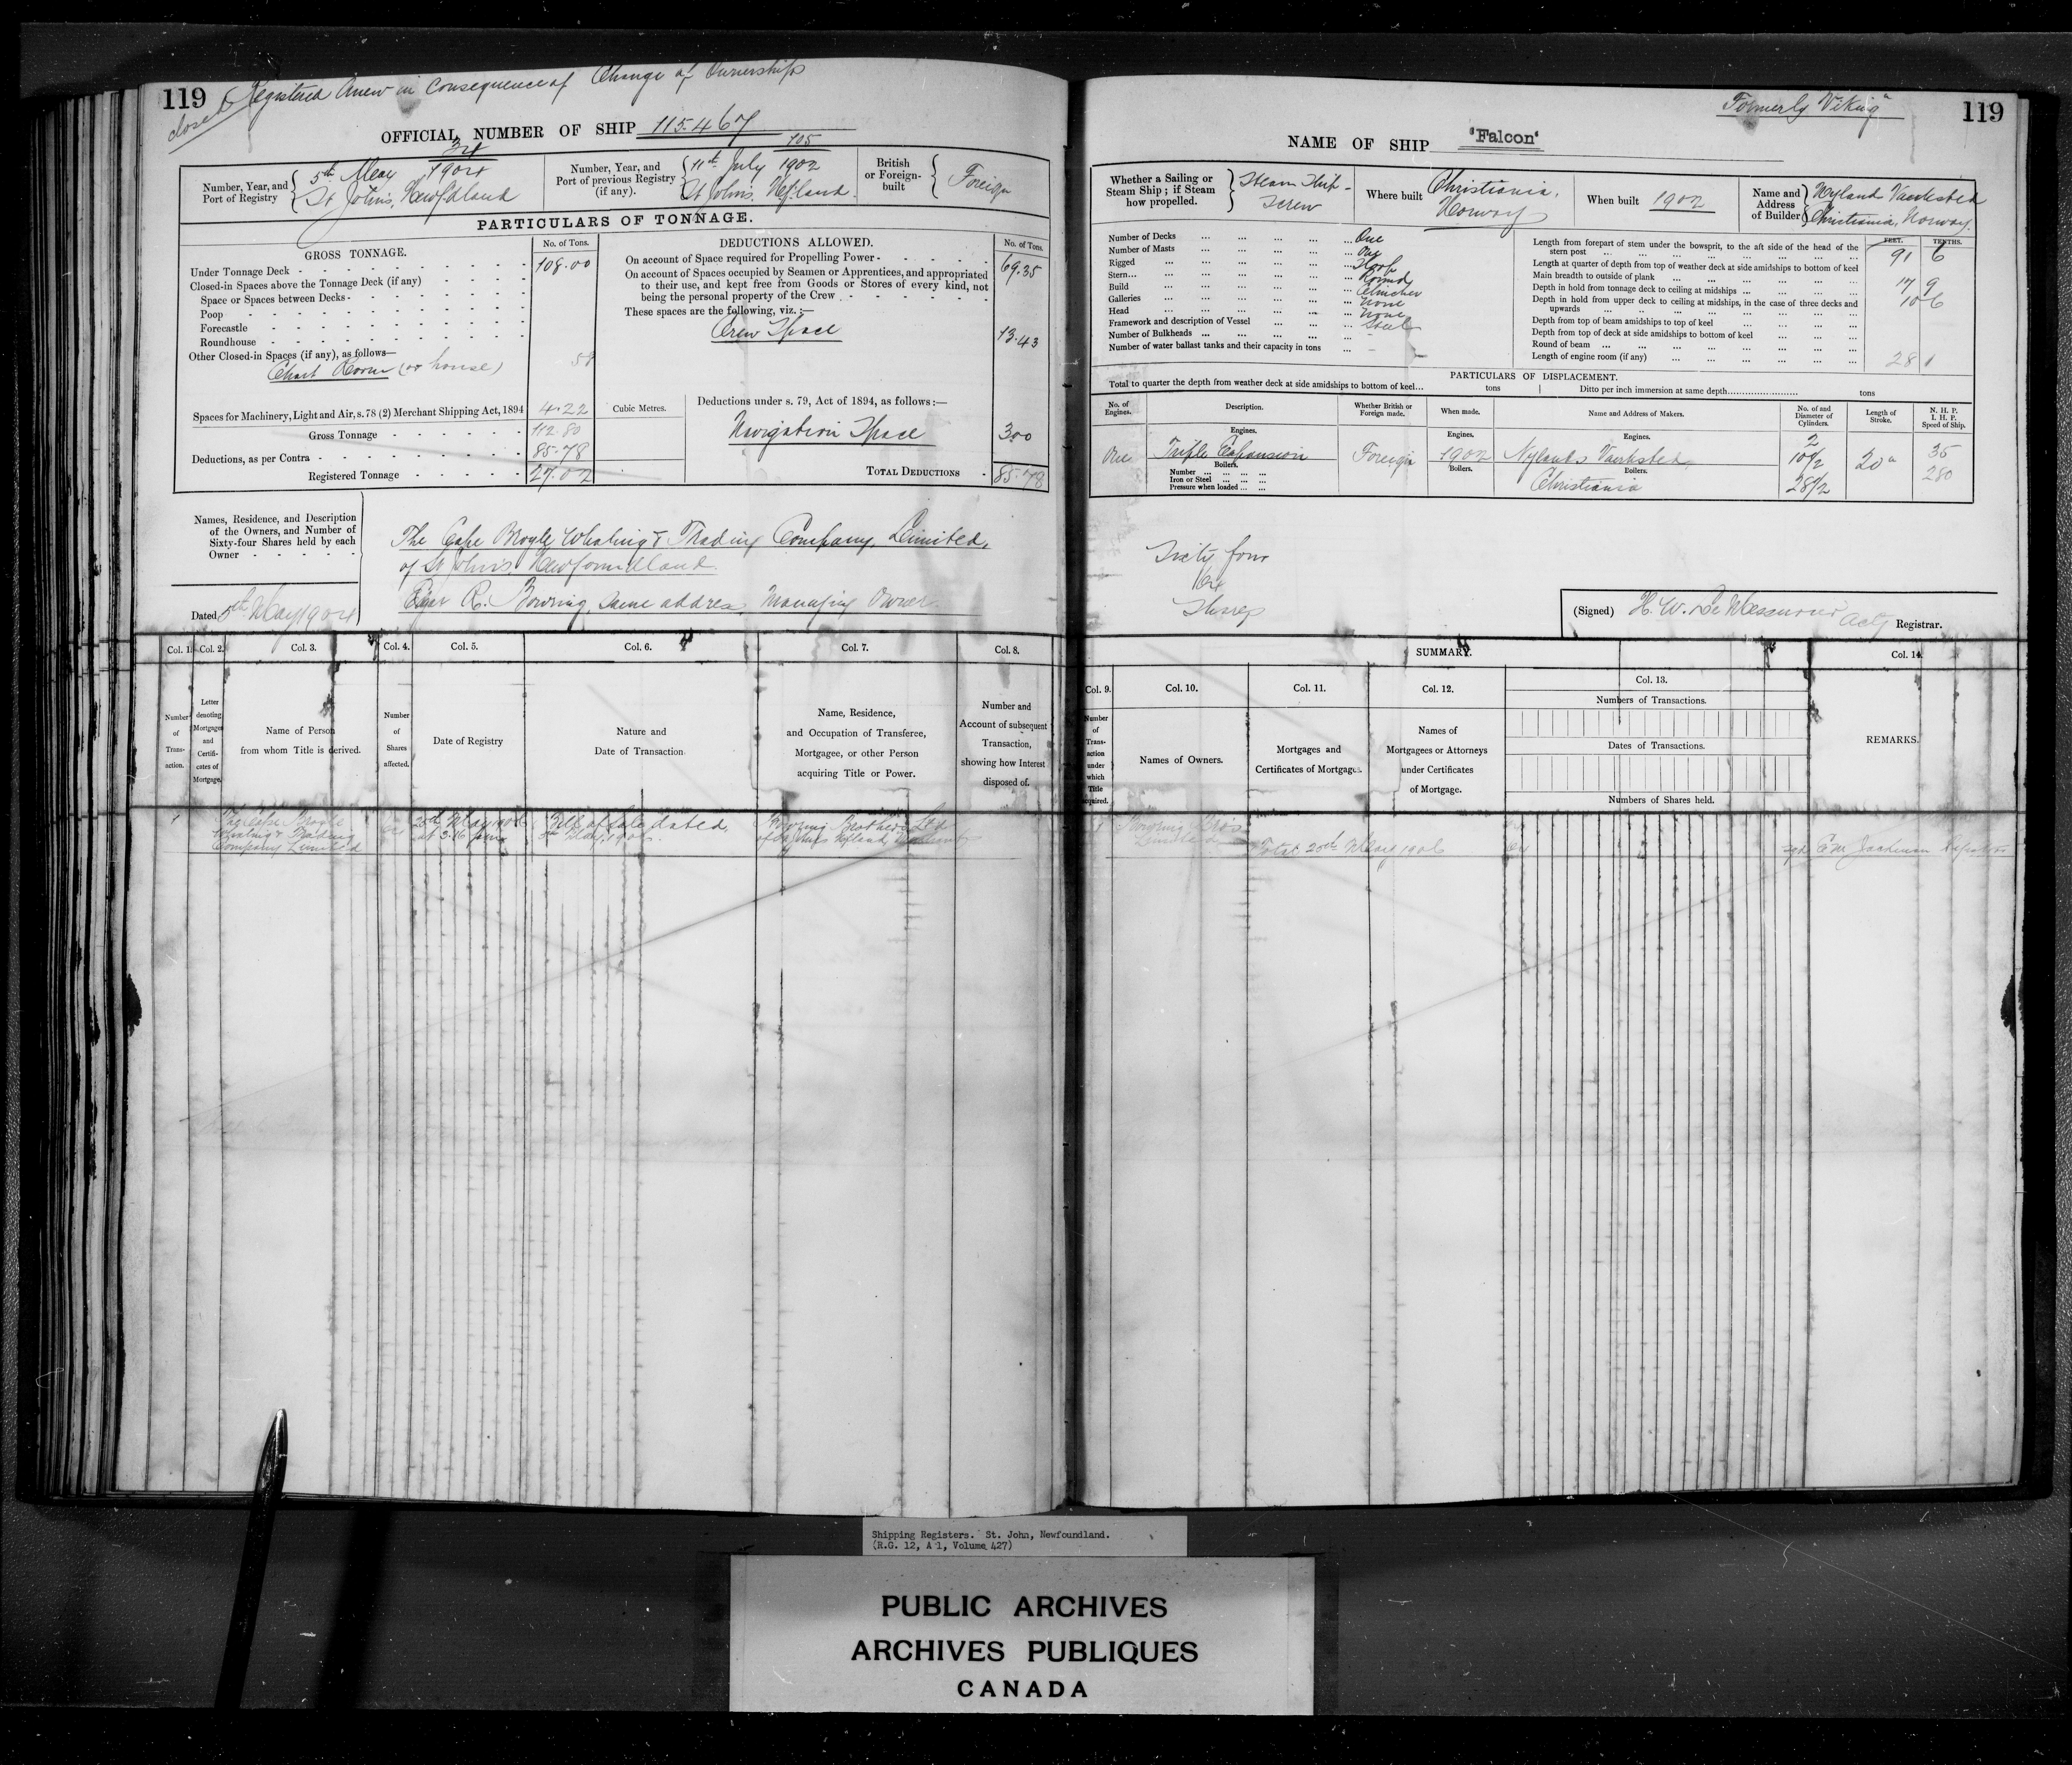 119
closed Registered Anew in consequence of Change of Ownership
OFFICIAL NUMBER OF SHIP 115.467
Number, Year, and Port of Registry
34
1904
5th May
St John's, Newfoundland
Number, Year, and Port of previous Registry (if any).
105
11th July 1902
St John's, Nfland.
British or Foreign-built
Foreign
PARTICULARS OF TONNAGE.
GROSS TONNAGE.
No. of Tons.
Under Tonnage Deck - 108.00
Closed-in Spaces above the Tonnage Deck (if any)
Space or Spaces between Decks -
Poop
Forecastle
Roundhouse
Other Closed-in Spaces (if any), as follows—
Chart Room (or house) 58
Spaces for Machinery, Light and Air, s. 78 (2) Merchant Shipping Act, 1894 4.22
Gross Tonnage 112.80
Deductions, as per Contra 85.78
Registered Tonnage 27.02
Cubic Metres.
DEDUCTIONS ALLOWED.
No. of Tons.
On account of Space required for Propelling Power - 69.35
On account of Spaces occupied by Seamen or Apprentices, and appropriated
to their use, and kept free from Goods or Stores of every kind, not
being the personal property of the Crew
These spaces are the following, viz. :—
Crew Space 13.43
Deductions under s. 79, Act of 1894, as follows :—
Navigation Space 3.00
TOTAL DEDUCTIONS - 85.78
Names, Residence, and Description
of the Owners, and Number of
Sixty-four Shares held by each
Owner
The Cape Broyle Whaling & Trading Company, Limited,
of St John's, Newfoundland.
Edgar R. Bowring, same address Managing Owner
Dated 5th May 1904
Col. 1. Col. 2. Col. 3. Col. 4. Col. 5. Col. 6. Col. 7. Col. 8.
Number of Trans-action.
Letter denoting Mortgages and Certifi-cates of Mortgage.
Name of Person from whom Title is derived.
Number of Shares affected.
Date of Registry
Nature and Date of Transaction
Name, Residence, and Occupation of Transferee, Mortgagee, or other Person acquiring Title or Power.
Number and Account of subsequent Transaction, showing how Interest disposed of.
1
The Cape Broyle
Whaling & Trading
Company Limited
at 3.16 p.m.
Bill of sale dated
Bowring Brothers Ltd
of St John's Nfland,
Formerly "Viking"
119
NAME OF SHIP "Falcon"
Whether a Sailing or Steam Ship; if Steam how propelled.
Steam Ship -
Screw
Where built
Christiania,
Norway
When built 1902
Name and Address of Builder
Nyland Vaerksted
Christiania, Norway.
Number of Decks ... One
Number of Masts ... One
Rigged
Stern ... Round
Build ... Clincher
Galleries ... None
Head ... None
Framework and description of Vessel ... Steel
Number of Bulkheads ... -
Number of water ballast tanks and their capacity in tons ... -
FEET. TENTHS.
Length from forepart of stem under the bowsprit, to the aft side of the head of the
stern post 91 6
Length at quarter of depth from top of weather deck at side amidships to bottom of keel
Main breadth to outside of plank 17 9
Depth in hold from tonnage deck to ceiling at midships 10 6
Depth in hold from upper deck to ceiling at midships, in the case of three decks and
upwards
Depth from top of beam amidships to top of keel
Depth from top of deck at side amidships to bottom of keel
Round of beam
Length of engine room (if any) 28 1
PARTICULARS OF DISPLACEMENT.
Total to quarter the depth from weather deck at side amidships to bottom of keel... tons
Ditto per inch immersion at same depth... tons
No. of Engines.
Description.
Whether British or Foreign made.
When made.
Name and Address of Makers.
No. of and Diameter of Cylinders.
Length of Stroke.
N. H. P.
I. H. P.
Speed of Ship.
Engines. Engines. Engines.
One Triple Expansion Foreign 1902 Nylands Vaerksted, 2 10 1/2 20" 35
Boilers. Boilers. Boilers.
Number
Iron or Steel
Pressure when loaded
Christiania 28 1/2 280
Sixty four
64
Shares
(Signed) H. W. LeMessurier Actg Registrar.
SUMMARY.
Col. 9. Col. 10. Col. 11. Col. 12. Col. 13. Col. 14.
Number of Trans-action under which Title acquired.
Names of Owners.
Mortgages and Certificates of Mortgage.
Names of Mortgagees or Attorneys under Certificates of Mortgage.
Numbers of Transactions.
Dates of Transactions.
Numbers of Shares held.
REMARKS.
1 Bowring Bros
Limited
64
Total 20th May 1906 64
Shipping Registers. St. John, Newfoundland.
(R.G. 12, A 1, Volume 427)
PUBLIC ARCHIVES
ARCHIVES PUBLIQUES
CANADA